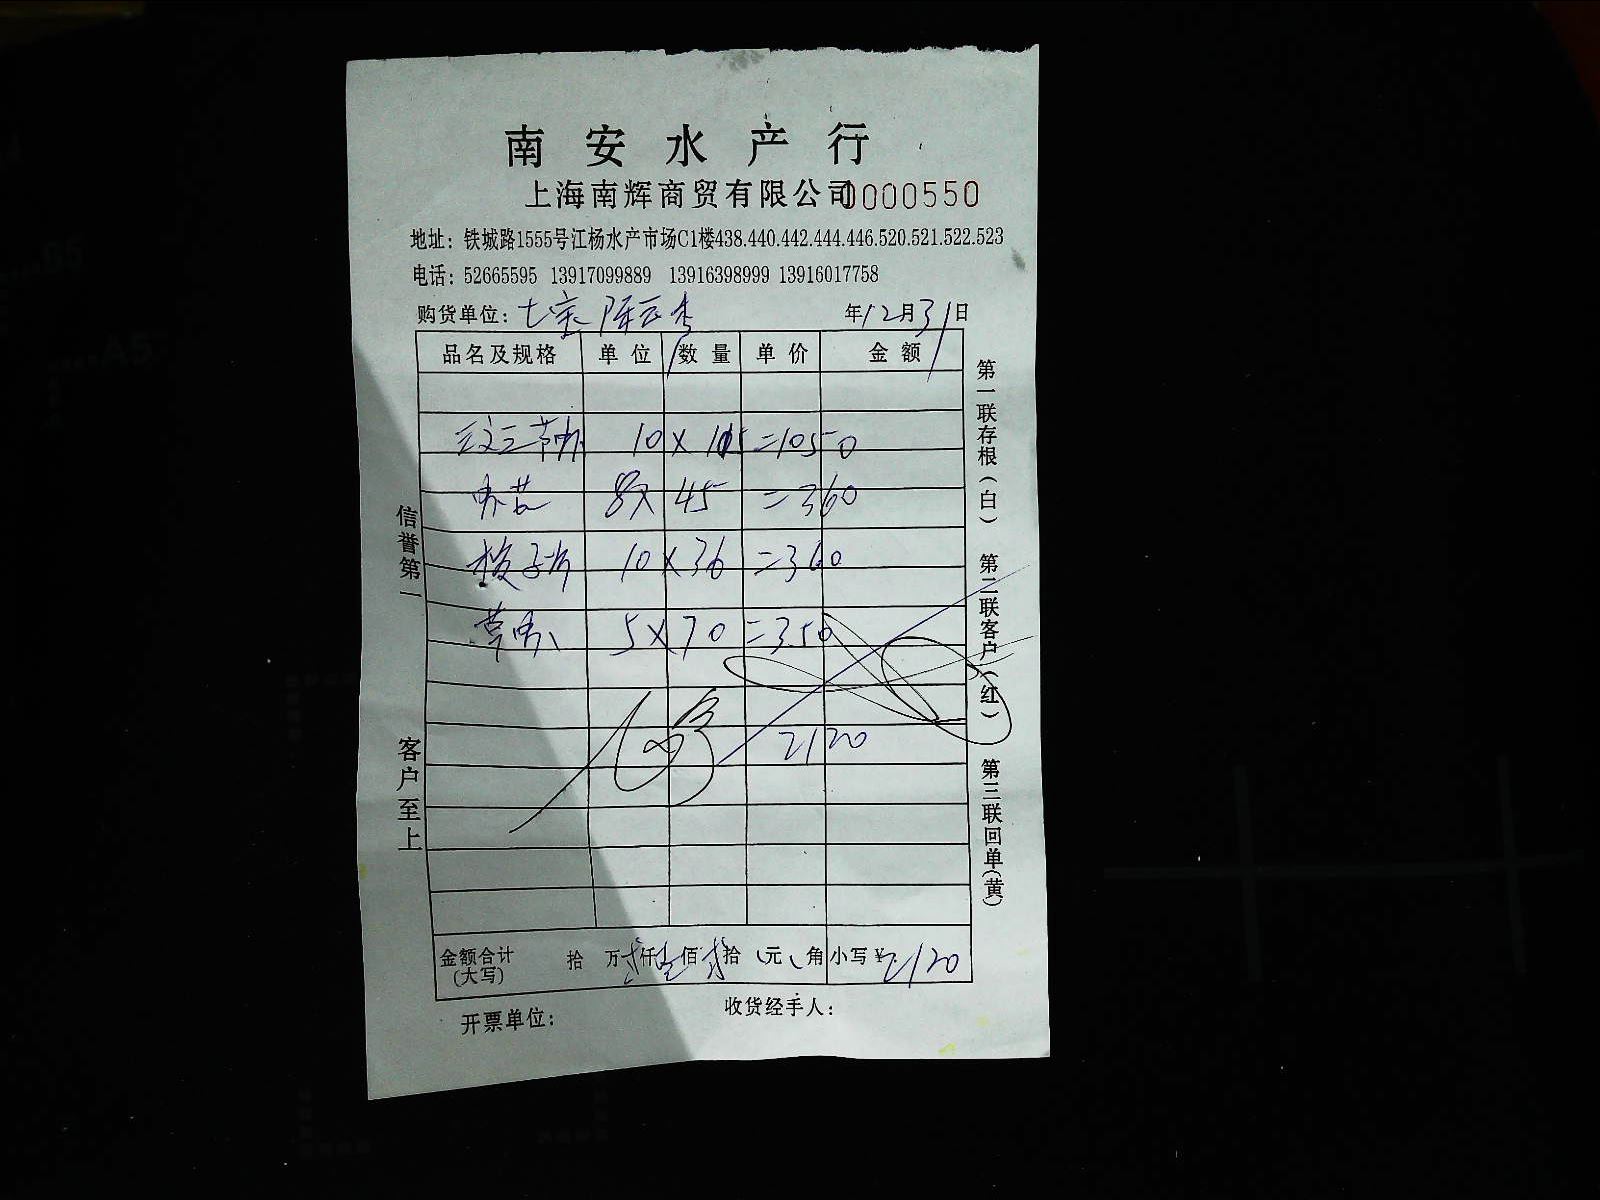 南安水产行
上海南辉商贸有限公司 0000550
地址：铁城路1555号江杨水产市场C1楼438.440.442.444.446.520.521.522.523
电话：52665595 13917099889 13916398999 13916017758
购货单位：七宝 年12月31日
品名及规格 单位 数量 单价 金额
10 × 105 =1050
8× 45 =360
10 × 36 =360
5 × 70 =350
2120
金额合计(大写) 拾 万贰仟壹佰贰拾 元 角 小写¥2120
开票单位： 收货经手人：
信誉第一
客户至上
第一联存根(白) 第二联客户(红) 第三联回单(黄)